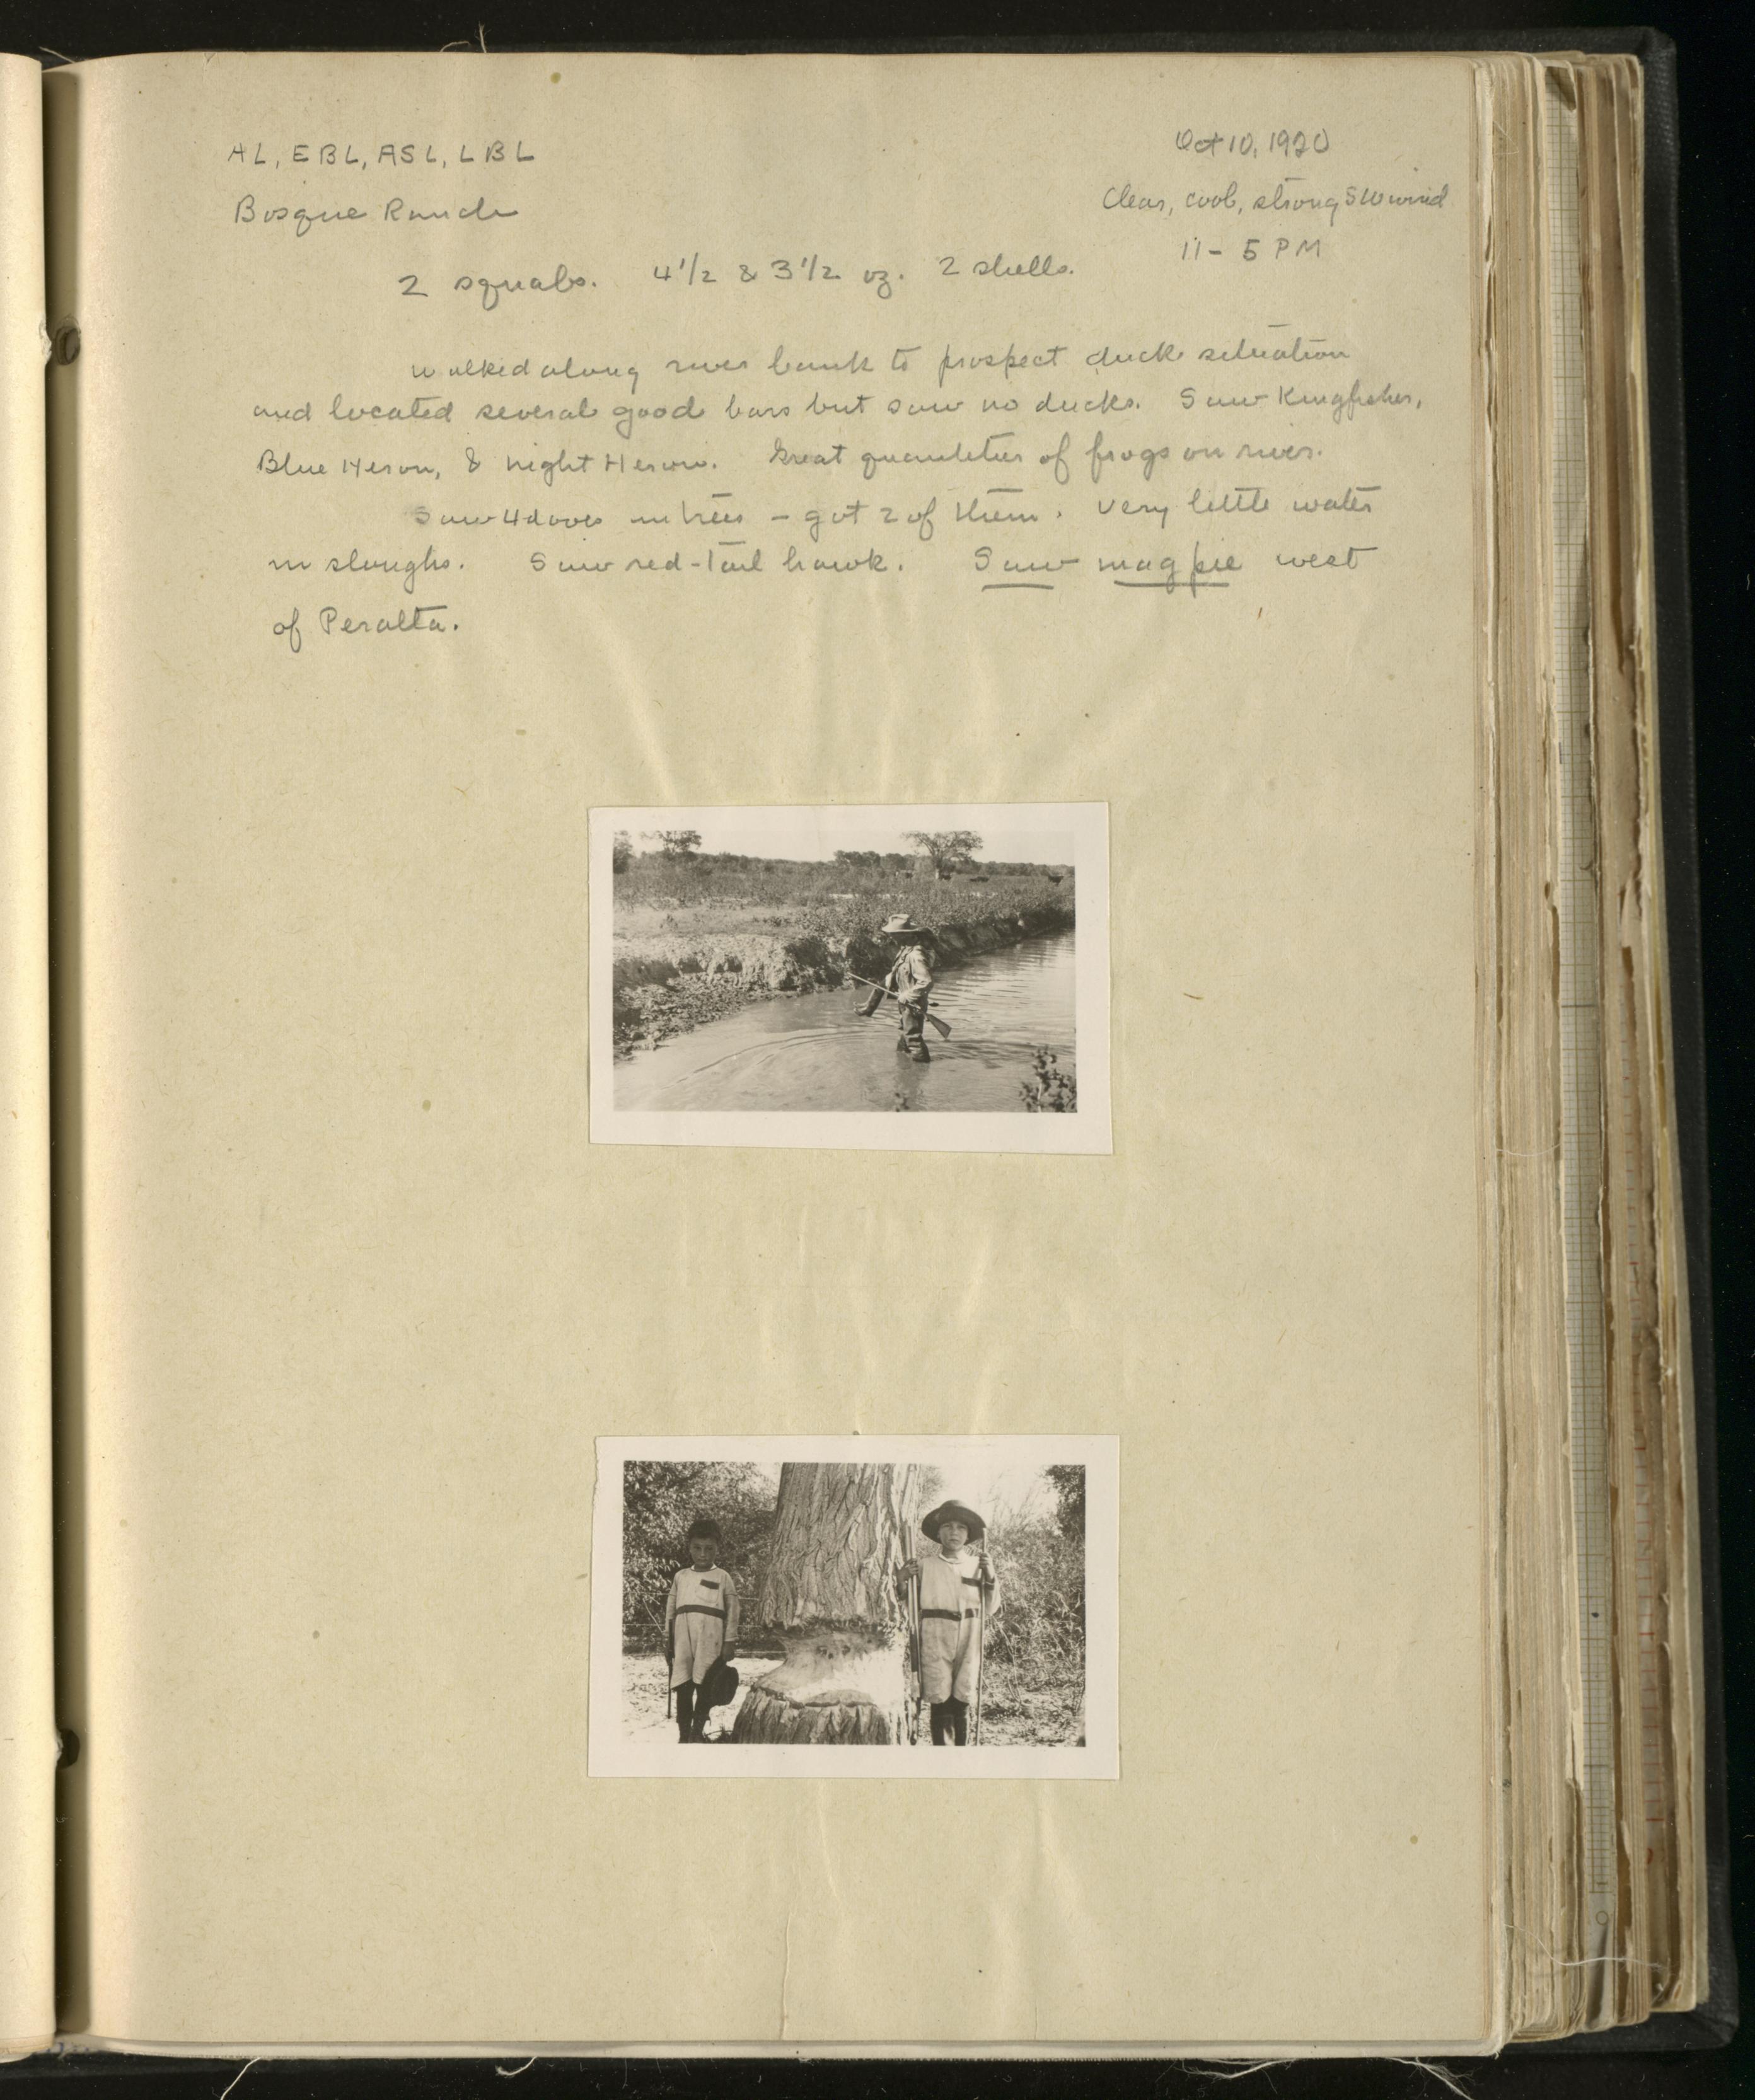 AL, EBL, ASL, LBL
Oct 10, 1920
Bosque Ranch
Clear, cool, strong SW wind
11 - 5 PM
2 squabs. 4 1/2 & 3 1/2 oz. 2 shells.
Walked along river bank to prospect duck situation
and located several good bars but saw no ducks. Saw Kingfisher,
Blue Heron, & night Heron. Great quantities of frogs on river.
Saw 4 doves in trees - got 2 of them. Very little water
in sloughs. Saw red-tail hawk. Saw magpie west
of Peralta.